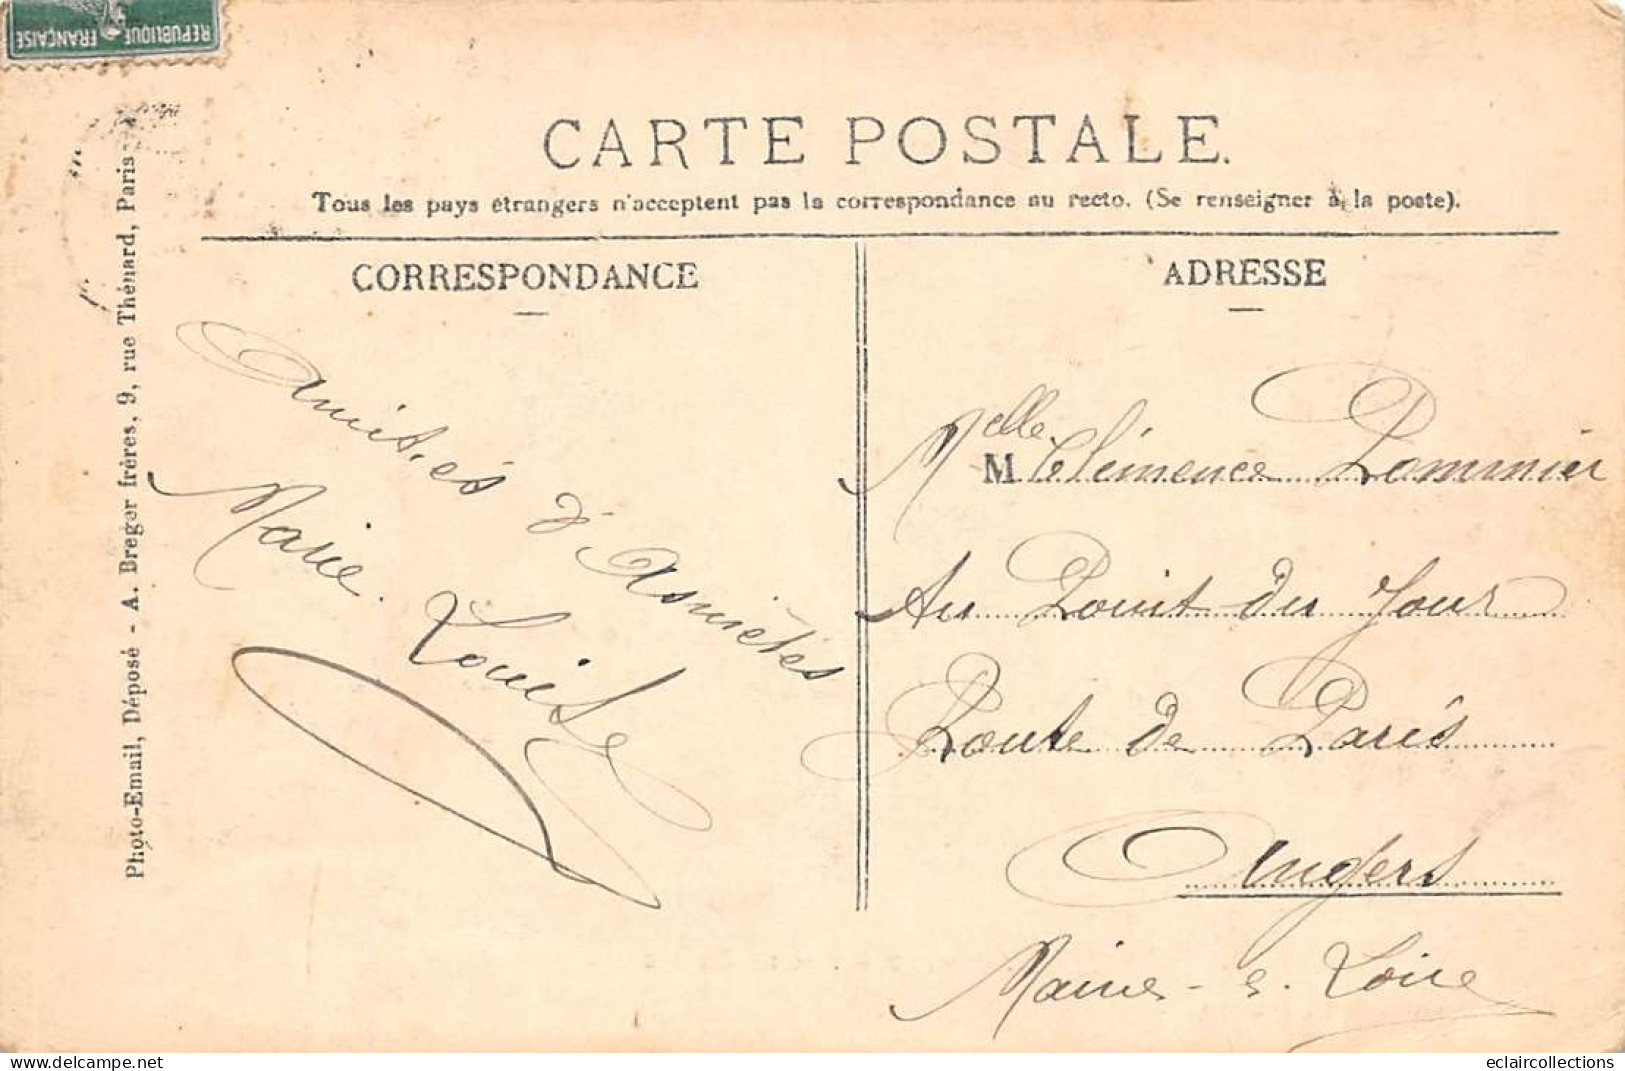 REPUBLIQUE FRANÇAISE
CARTE POSTALE.
Tous les pays étrangers n'acceptent pas la correspondance au recto. (Se renseigner à la poste).
CORRESPONDANCE
Amitiés d'Asnières
Marie Louise
ADRESSE
Melle
M Clémence Pommier
Au Point du Jour
Route de Paris
Angers
Maine-e-Loire
Photo-Email, Déposé - A. Breger frères, 9, rue Thénard, Paris
www.delcampe.net
eclaircollections